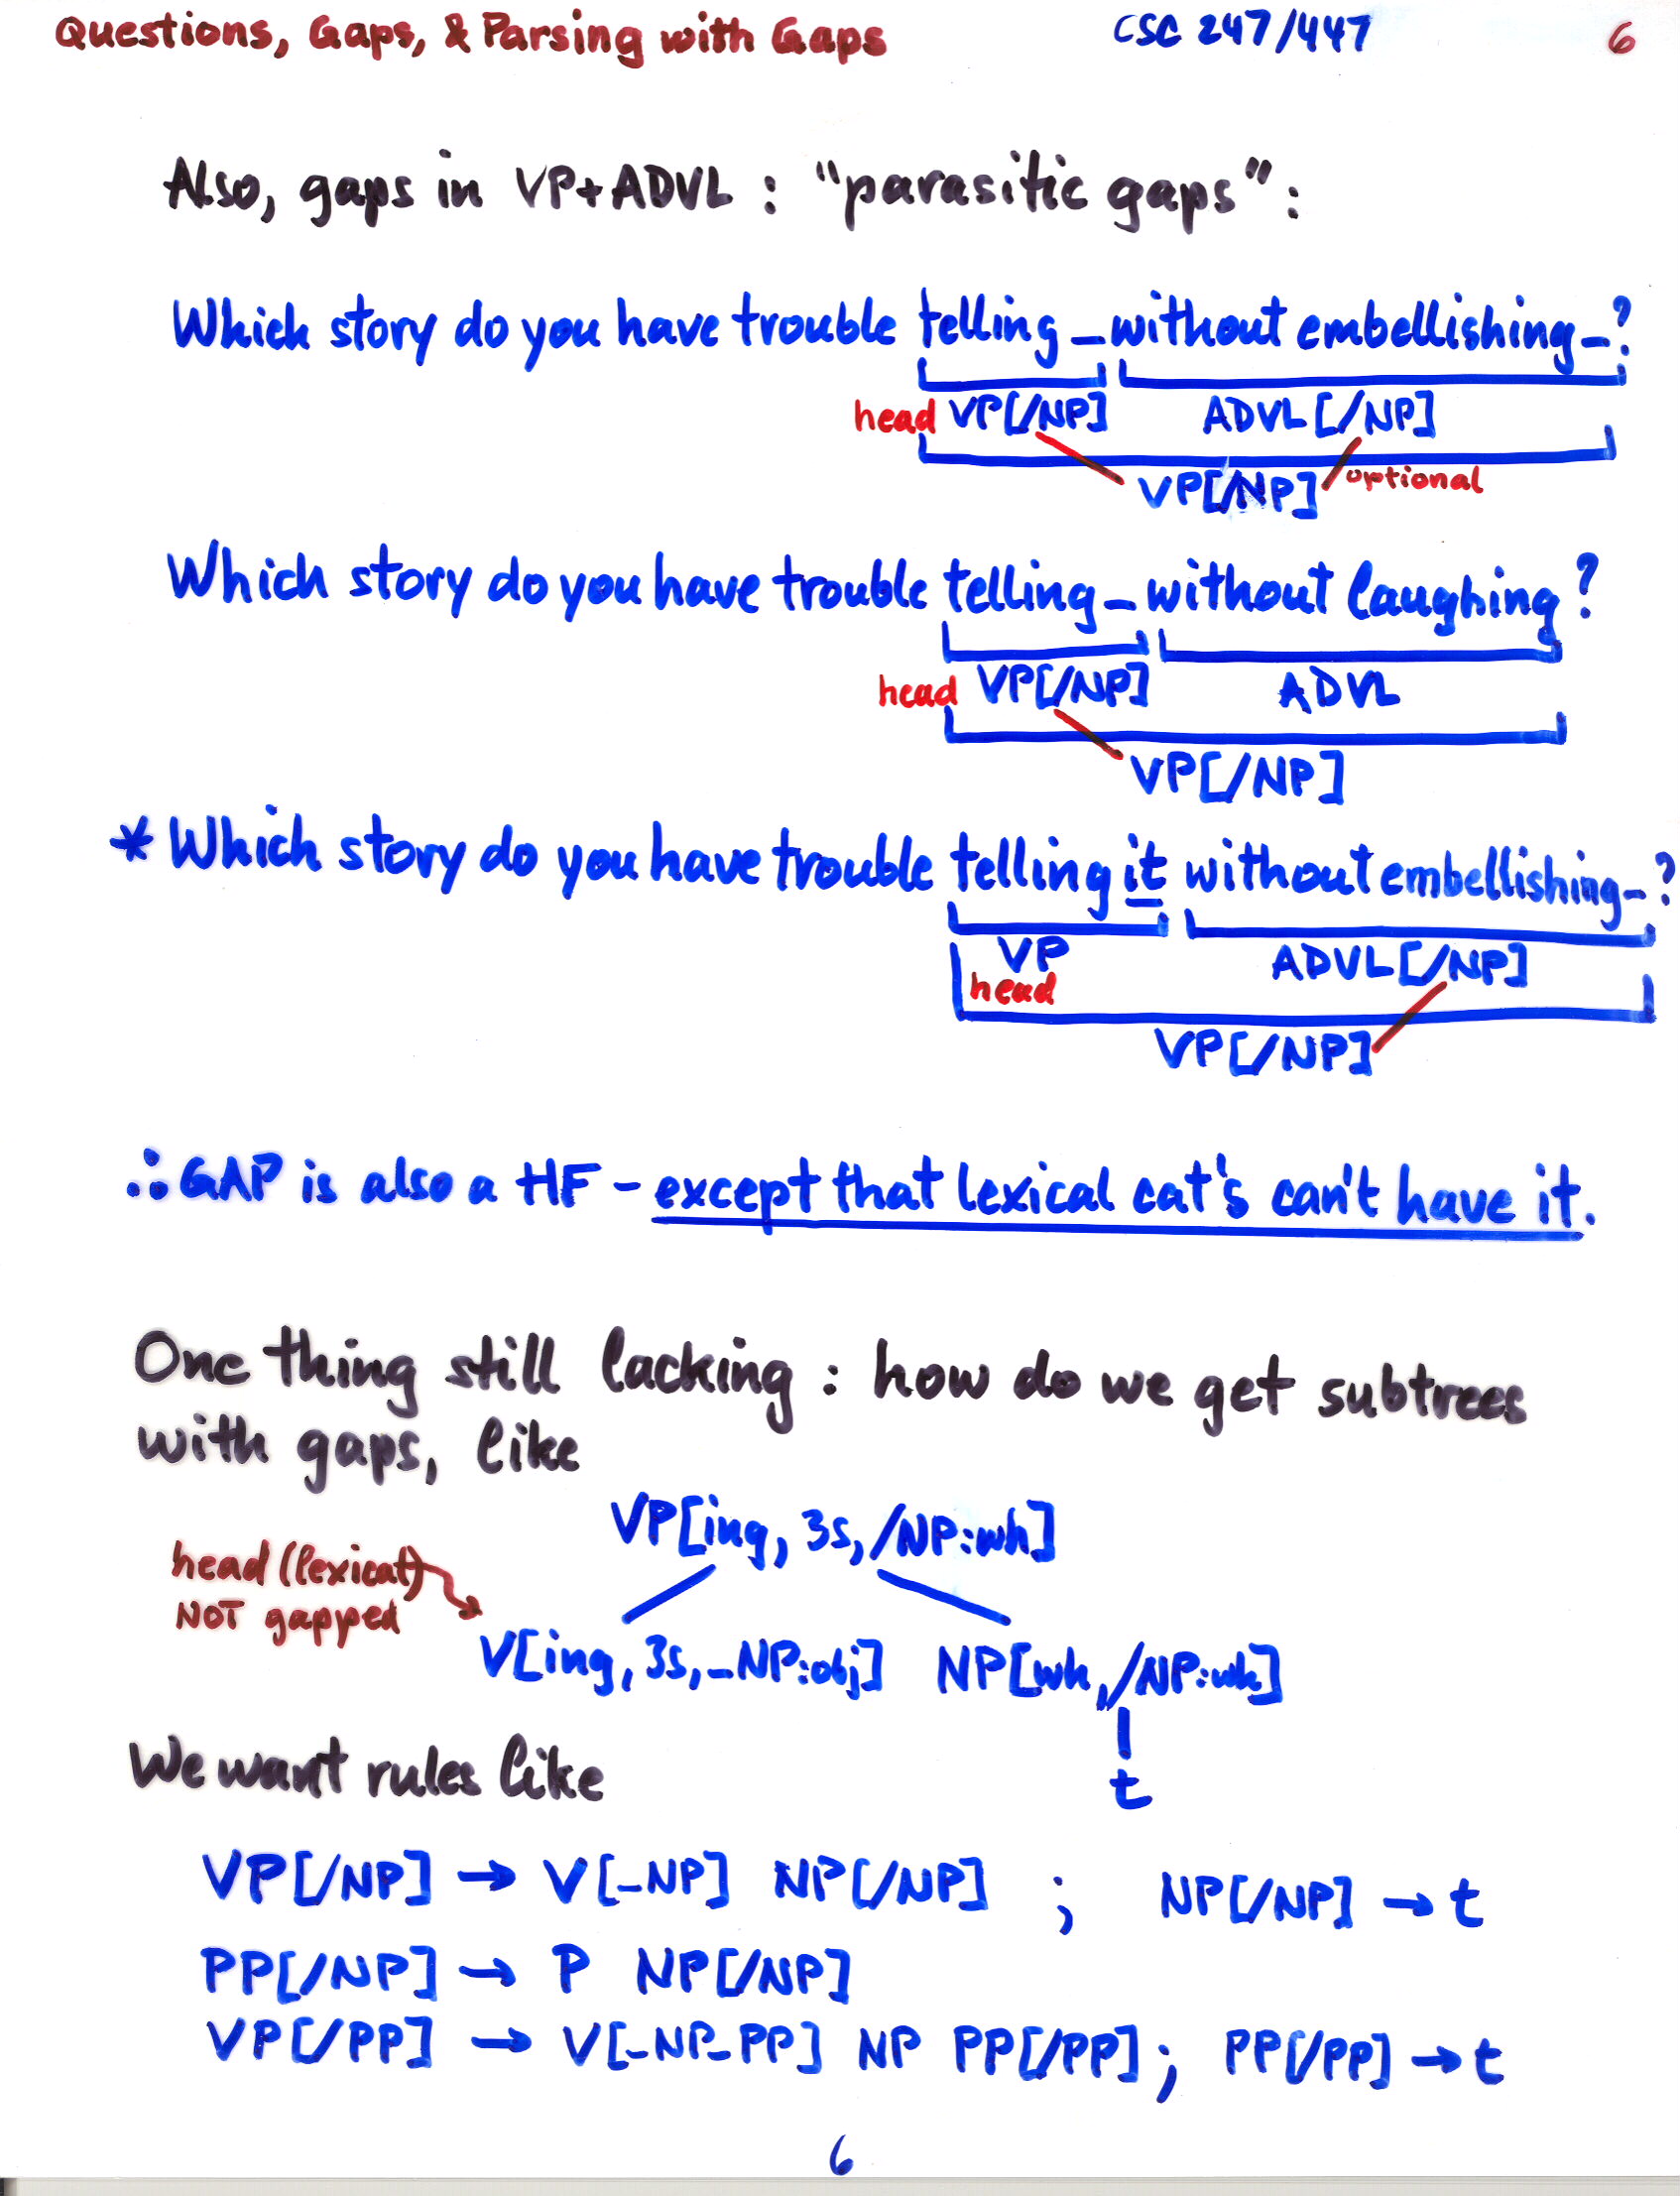 Questions, Gaps, & Parsing with Gaps CSC 247/447 6
Also, gaps in VP+ADVL : "parasitic gaps":
Which story do you have trouble telling _ without embellishing _?
head VP[/NP] ADVL[/NP]
VP[/NP] optional
Which story do you have trouble telling _ without laughing?
head VP[/NP] ADVL
VP[/NP]
* Which story do you have trouble telling it without embellishing _?
VP ADVL[/NP]
head
VP[/NP]
∴ GAP is also a HF - except that lexical cat's can't have it.
One thing still lacking : how do we get subtrees
with gaps, like
VP[ing, 3s, /NP:wh]
head (lexical)
NOT gapped
V[ing, 3s, _NP:obj] NP[wh, /NP:wh]
t
We want rules like
VP[/NP] → V[_NP] NP[/NP] ; NP[/NP] → t
PP[/NP] → P NP[/NP]
VP[/PP] → V[_NP_PP] NP PP[/PP] ; PP[/PP] → t
6